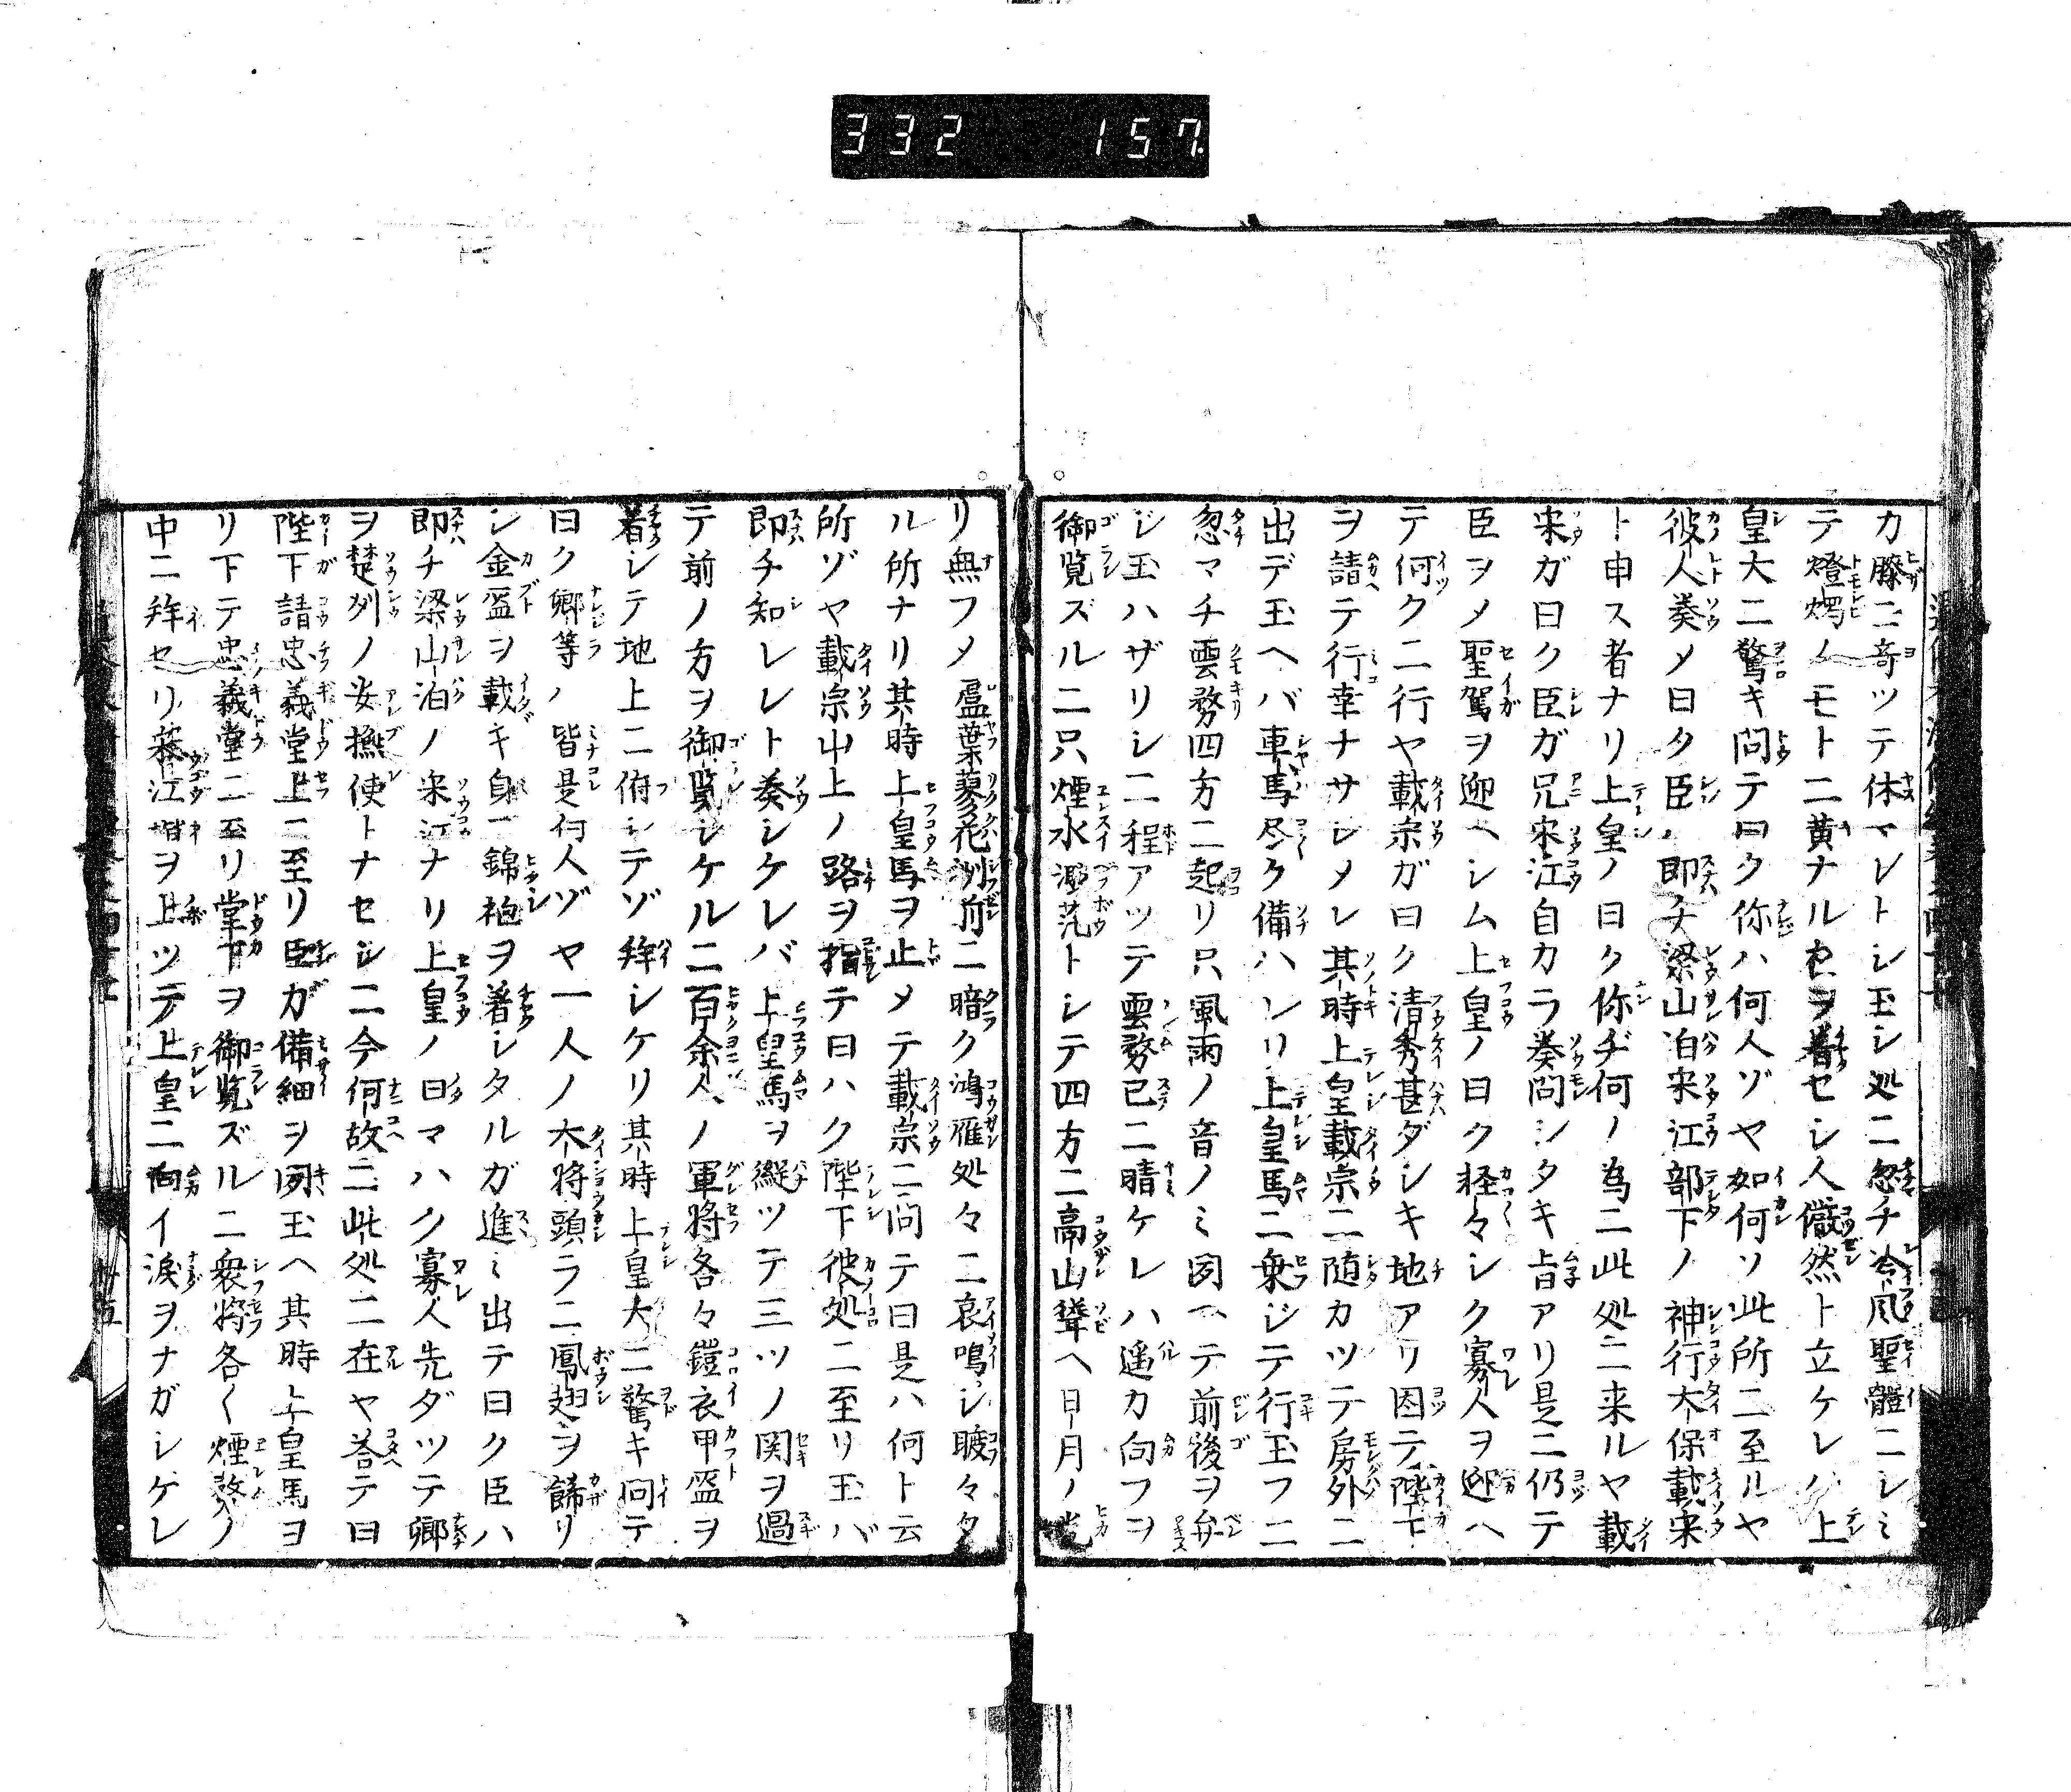 332 157
カ膝ニ奇ツテ休マレトシ玉シ処ニ忽チ冷風聖體ニシミ
テ燈燭ノモトニ黄ナル色ヲ着セシ人儼然ト立ケレハ上
皇大ニ驚キ問テ曰ク你ハ何人ゾヤ如何ソ此所ニ至ルヤ
彼人奏メ曰ク臣ハ即チ梁山泊宋江部下ノ神行大保載宋
ト申ス者ナリ上皇ノ曰ク你ヂ何ノ為ニ此処ニ来ルヤ載
宋ガ曰ク臣ガ兄宋江自カラ奏問シタキ旨アリ是ニ仍テ
臣ヲメ聖駕ヲ迎ヘシム上皇ノ曰ク軽々シク寡人ヲ迎ヘ
テ何クニ行ヤ載宗ガ曰ク清秀甚ダシキ地アリ因テ陛下
ヲ請テ行幸ナサレメレ其時上皇載宗ニ随カツテ房外ニ
出デ玉ヘバ車馬尽ク備ハレリ上皇馬ニ乗ジテ行玉フニ
忽マチ雲霧四方ニ起リ只風雨ノ音ノミ聞ヘテ前後ヲ弁
ジ玉ハザリシニ程アツテ雲霧已ニ晴ケレハ遥カ向フヲ
御覧ズルニ只煙水渺茫トシテ四方ニ高山聳ヘ日月ノ光
リ無フメ蘆葉蓼花洲前ニ暗ク鴻雁処々ニ哀鳴シ聴々タ
ル所ナリ其時上皇馬ヲ止メテ載宗ニ問テ曰是ハ何ト云
所ゾヤ載宗山上ノ路ヲ指テ曰ハク陛下彼処ニ至リ玉バ
即チ知レレト奏シケレバ上皇馬ヲ縦ツテ三ツノ関ヲ過
テ前ノ方ヲ御覧シケルニ百余人ノ軍将各々鎧衣甲盔ヲ
着シテ地上ニ俯シテゾ拝シケリ其時上皇大ニ驚キ問テ
曰ク卿等ハ皆是何人ゾヤ一人ノ大将頭ラニ鳳翅ヲ餙リ
シ金盔ヲ載キ身ニ錦袍ヲ着シタルガ進ミ出テ曰ク臣ハ
即チ梁山泊ノ宋江ナリ上皇ノ曰マハク寡人先ダツテ卿
ヲ楚列ノ安撫使トナセシニ今何故ニ此処ニ在ヤ答テ曰
陛下請忠義堂上ニ至リ臣ガ備細ヲ聞玉ヘ其時上皇馬ヨ
リ下テ忠義堂ニ至リ堂下ヲ御覧ズルニ衆将各〱煙霧ノ
中ニ拝セリ宋江堦ヲ上ツテ上皇ニ向イ涙ヲナガシケレ